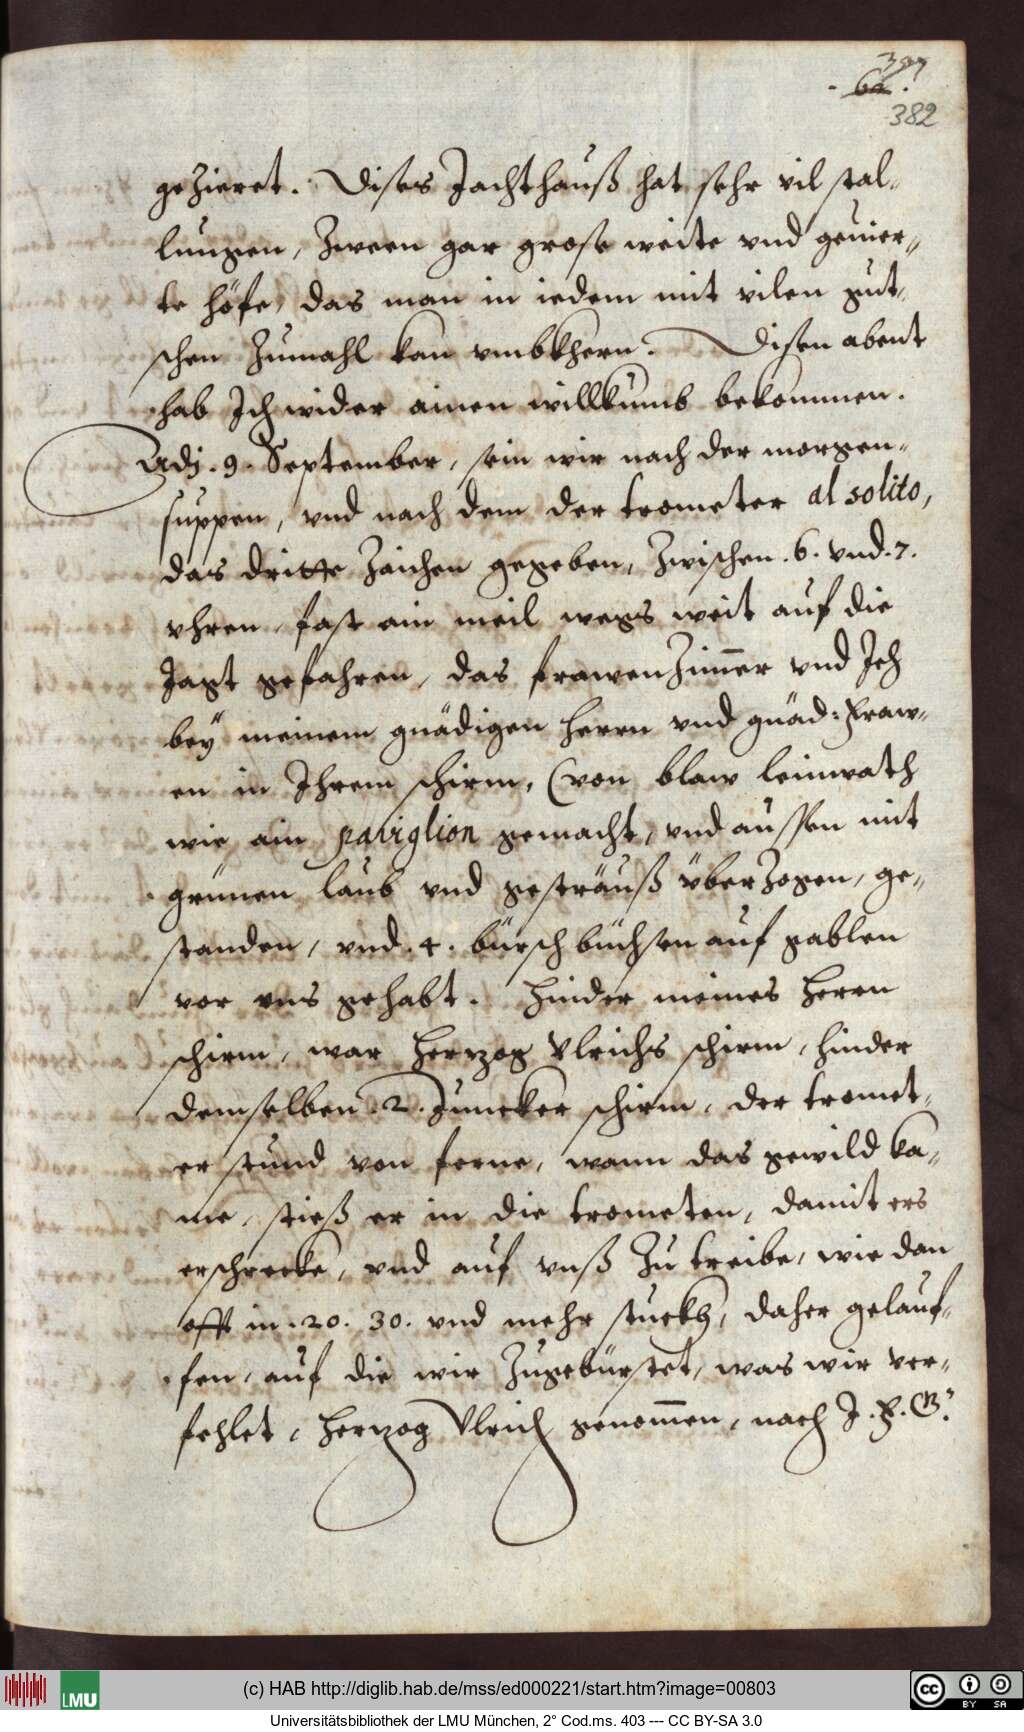 382
gezieret. Dises Jachthauß hat sehr vil stal-
lungen, zween gar grose weite vnd geuier-
te höfe, das man in iedem mit vilen gut-
schen zumahl kan vmbkhern. Disen abent
hab Ich wider ainen willkumb bekommen.
Adj. 9. September, sein wir nach der morgen-
suppen, vnd nach dem der trometer al solito,
das dritte zaichen gegeben, zwischen .6. vnd .7.
vhren, fast ain meil wegs weit auf die
Jagt gefahren, das frawenzimer vnd Ich
bey meinem gnädigen herrn vnd gnäd: fraw-
en in Ihrem schirm, (von blaw leinwath
wie ain paviglion gemacht, vnd aussen mit
grünen laub vnd gesträuß überzogen, ge-
standen, vnd .4. bürschbüchsen auf gablen
vor vns gehabt. Hinder meines herrn
schirm, war Herzog Vlrichs schirm, hinder
demselben .2. Juncker schirm, der tromet-
er stund von ferne, wann das gewild ka-
me, stieß er in die trometen, damit ers
erschrecke, vnd auf vnß zu treibe, wie dan
offt in .20. 30. vnd mehr stuckh, daher gelauf-
fen, auf die wir zugebürstet, was wir ver-
fehlet, Herzog Vlrich genommen, nach J. F. G.
(c) HAB http://diglib.hab.de/mss/ed000221/start.htm?image=00803
LMU
CC BY SA
Universitätsbibliothek der LMU München, 2° Cod.ms. 403 --- CC BY-SA 3.0